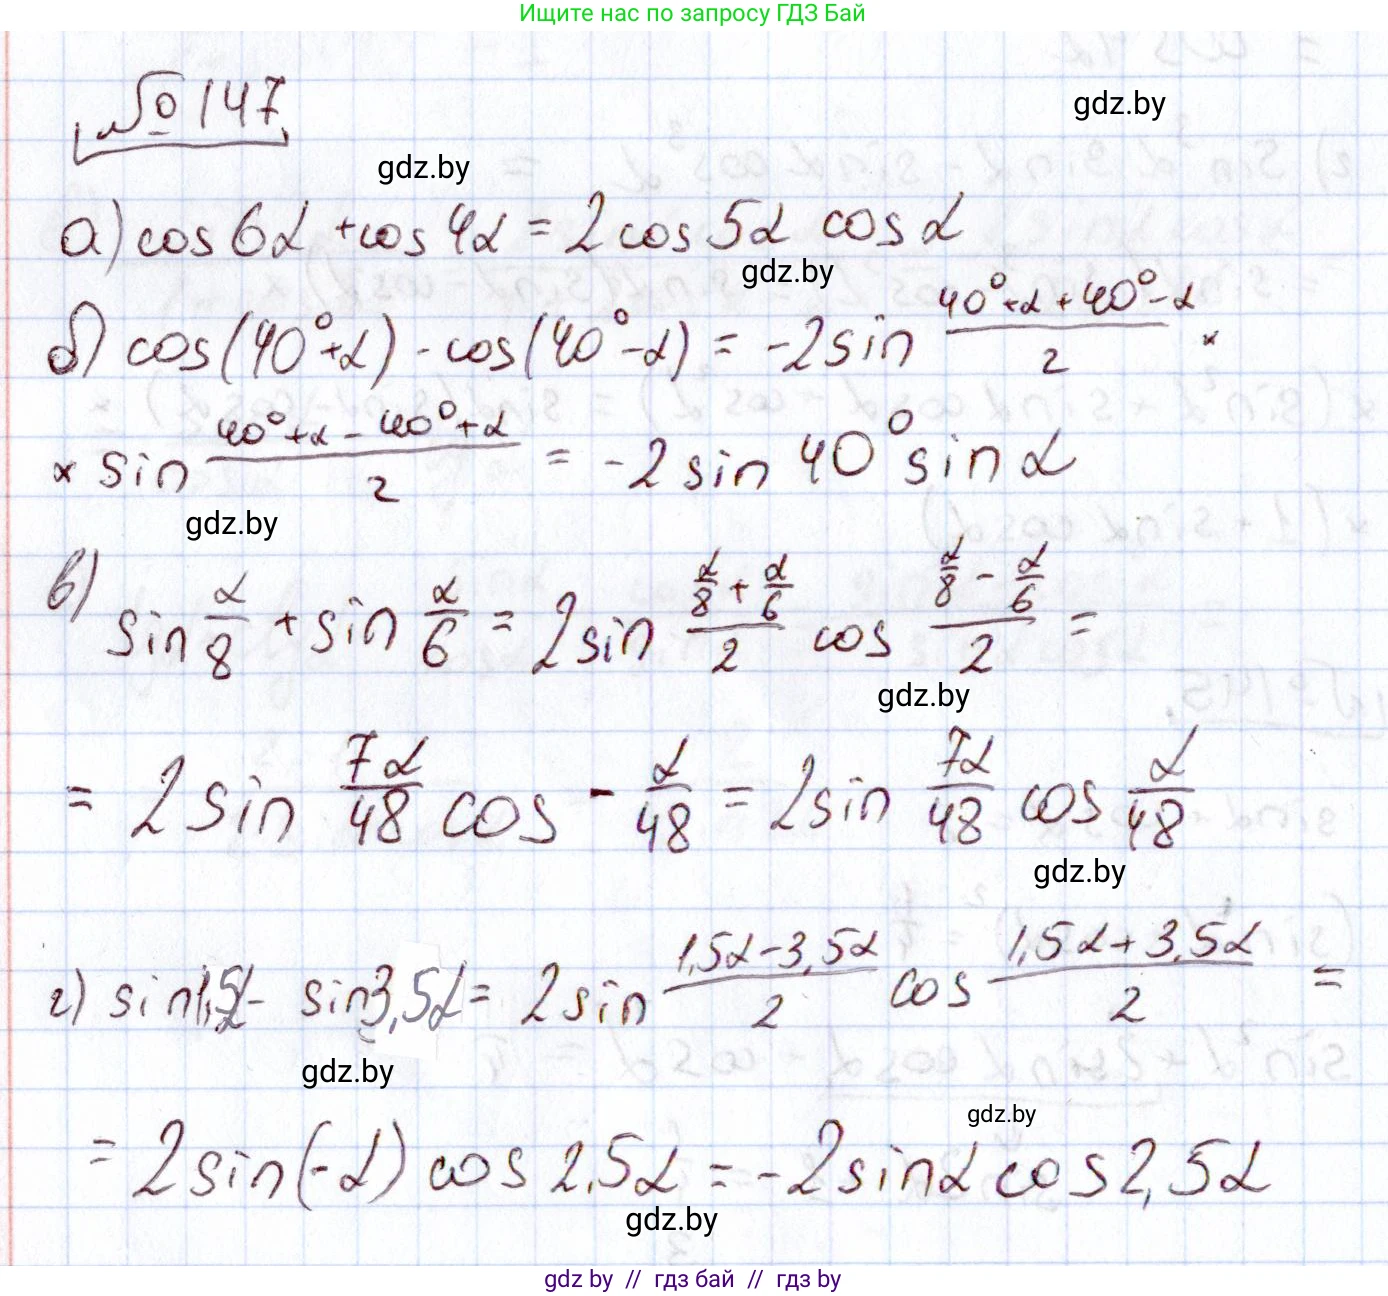 Ищите нас по запросу ГДЗ Бай
№ 147
gdz.by
gdz.by
а) cos 6α + cos 4α = 2 cos 5α cos α
gdz.by
б) cos(40° + α) - cos(40° - α) = -2 sin (40° + α + 40° - α)/2 ×
× sin (40° + α - 40° + α)/2 = -2 sin 40° sin α
gdz.by
в) sin α/8 + sin α/6 = 2 sin (α/8 + α/6)/2 cos (α/8 - α/6)/2 =
gdz.by
= 2 sin 7α/48 cos - α/48 = 2 sin 7α/48 cos α/48
gdz.by
г) sin 1,5α - sin 3,5α = 2 sin (1,5α - 3,5α)/2 cos (1,5α + 3,5α)/2 =
gdz.by
gdz.by
= 2 sin(-α) cos 2,5α = -2 sin α cos 2,5α
gdz.by
gdz by // гдз бай // гдз by